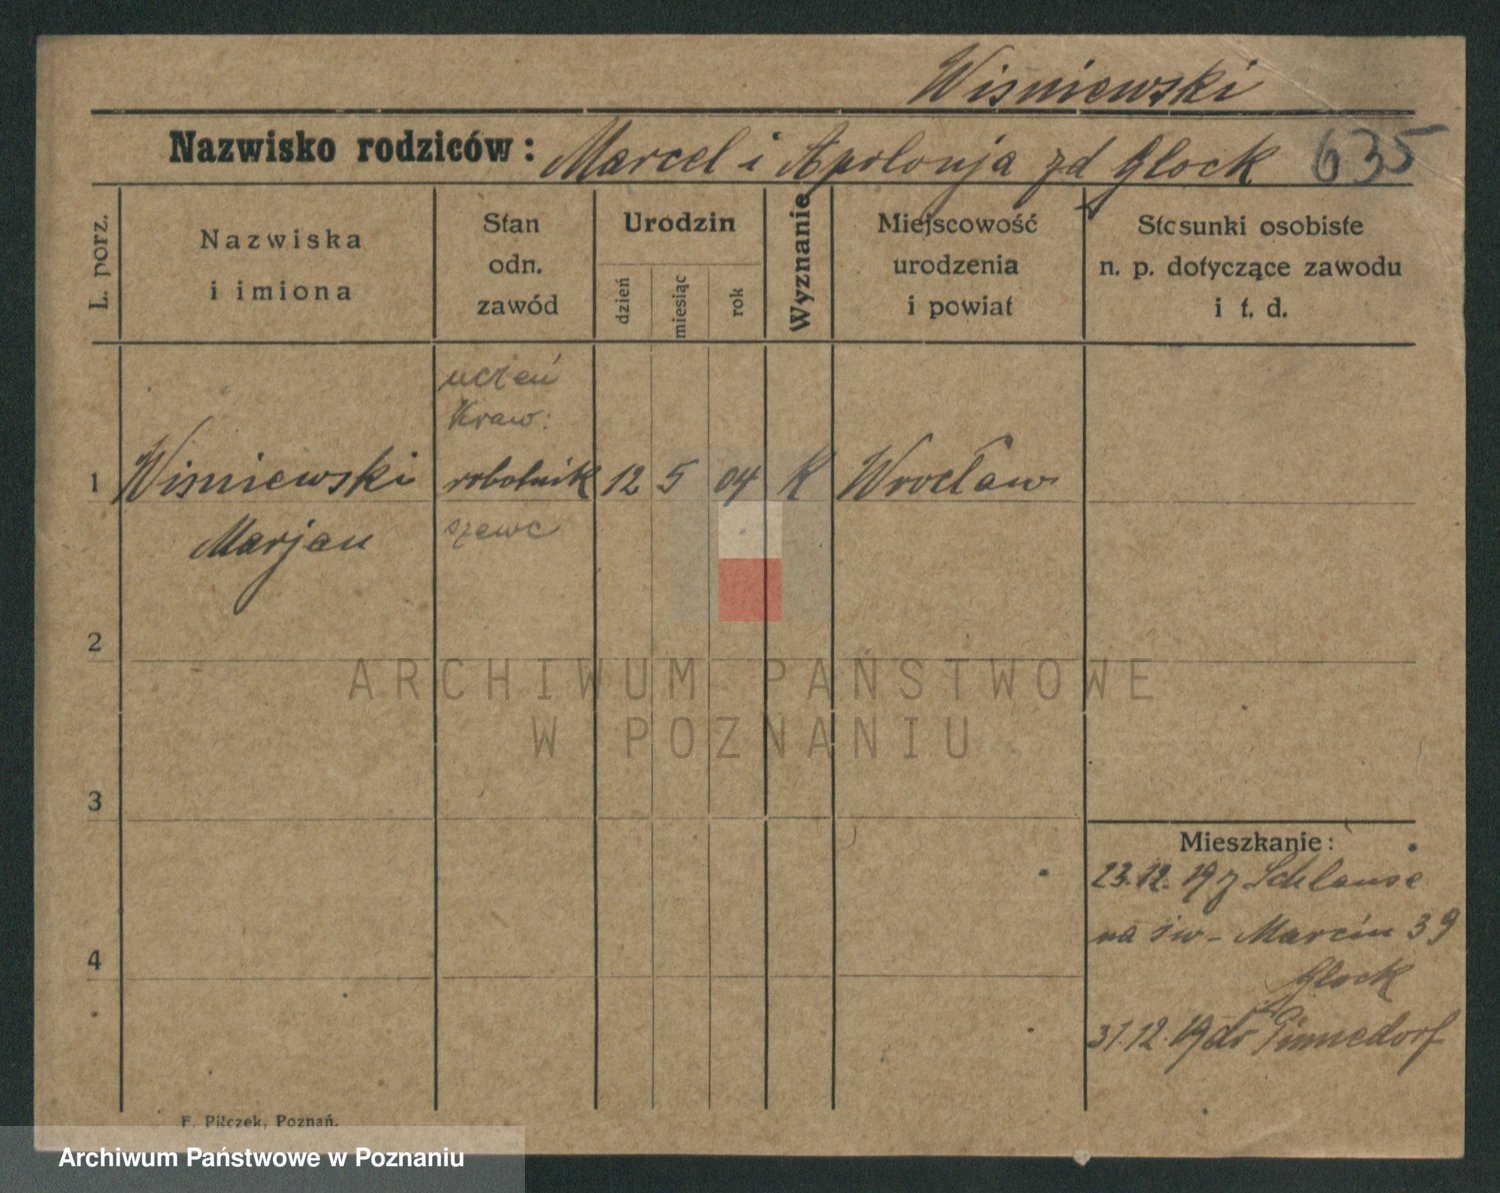 Wisniewski
Nazwisko rodziców: Marcel i Apolonja zd Glock 635
L. porz.
Nazwiska
i imiona
Stan
odn.
zawód
Urodzin
dzień
miesiąc
rok
Wyznanie
Miejscowość
urodzenia
i powiat
Stosunki osobiste
n. p. dotyczące zawodu
i t. d.
uczeń
Kraw:
1 Wisniewski robotnik 12 5 04 K Wrocław
Marjan szewc
2
3
4
Mieszkanie:
23.12.19 z Schlause
na św- Marcin 39
Glock
31.12.19 do
F. Pilczek, Poznań.
ARCHIWUM PAŃSTWOWE
W POZNANIU
Archiwum Państwowe w Poznaniu